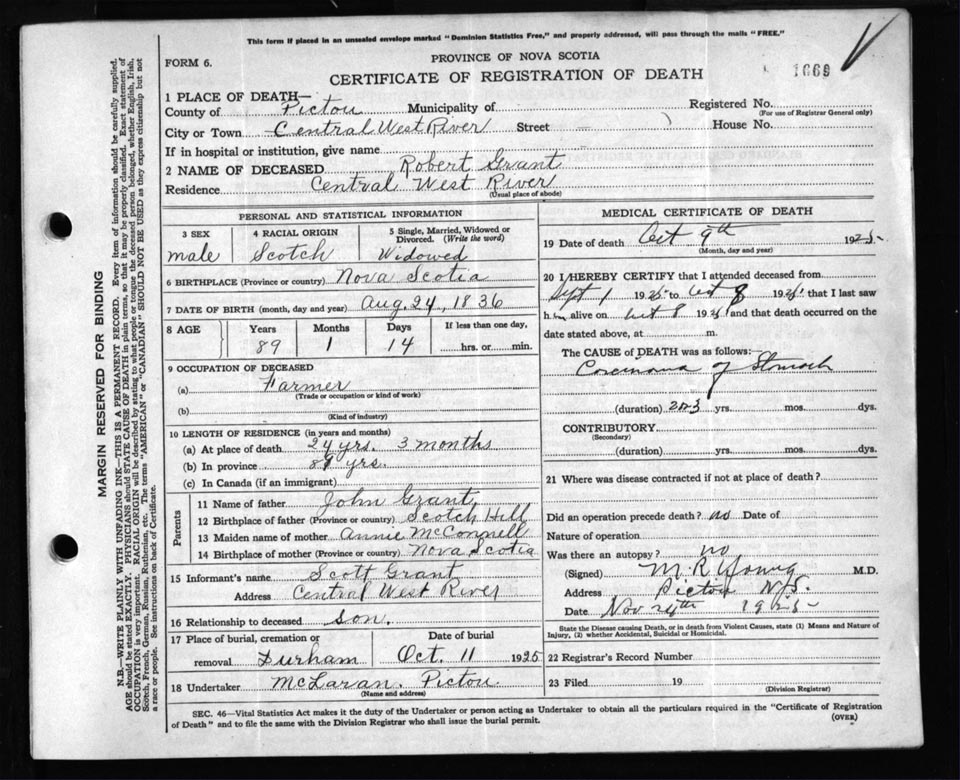 This form if placed in an unsealed envelope marked "Dominion Statistics Free," and properly addressed, will pass through the mails "FREE."
FORM 6.
PROVINCE OF NOVA SCOTIA
CERTIFICATE OF REGISTRATION OF DEATH
1669
1 PLACE OF DEATH—
County of Pictou Municipality of Registered No.
(For use of Registrar General only)
City or Town Central West River Street — House No.
If in hospital or institution, give name
2 NAME OF DECEASED Robert Grant
Residence Central West River
(Usual place of abode)
PERSONAL AND STATISTICAL INFORMATION
3 SEX 4 RACIAL ORIGIN 5 Single, Married, Widowed or Divorced. (Write the word)
male Scotch Widowed
6 BIRTHPLACE (Province or country) Nova Scotia
7 DATE OF BIRTH (month, day and year) Aug. 24, 1836
8 AGE Years Months Days If less than one day,
89 1 14 hrs. or min.
9 OCCUPATION OF DECEASED
(a) Farmer
(Trade or occupation or kind of work)
(b)
(Kind of industry)
10 LENGTH OF RESIDENCE (in years and months)
(a) At place of death 24 yrs. 3 months
(b) In province 89 yrs.
(c) In Canada (if an immigrant)
Parents
11 Name of father John Grant
12 Birthplace of father (Province or country) Scotch Hill
13 Maiden name of mother Annie McConnell
14 Birthplace of mother (Province or country) Nova Scotia
15 Informant's name Scott Grant
Address Central West River
16 Relationship to deceased Son.
17 Place of burial, cremation or Date of burial
removal Durham Oct. 11 1925
18 Undertaker McLaran. Pictou
(Name and address)
MEDICAL CERTIFICATE OF DEATH
19 Date of death Oct 9th 1925
(Month, day and year)
20 I HEREBY CERTIFY that I attended deceased from
Sept 1 1925 to Oct 8 1925 that I last saw
him alive on Oct 8 1925 and that death occurred on the
date stated above, at m.
The CAUSE of DEATH was as follows:
Carcinoma of Stomach
(duration) 2 or 3 yrs. mos. dys.
CONTRIBUTORY
(Secondary)
(duration) yrs. mos. dys.
21 Where was disease contracted if not at place of death?
Did an operation precede death? no Date of
Nature of operation
Was there an autopsy? no
(Signed) M. R. Young M.D.
Address Pictou N.S.
Date Nov 1925
State the Disease causing Death, or in death from Violent Causes, state (1) Means and Nature of
Injury, (2) whether Accidental, Suicidal or Homicidal.
22 Registrar's Record Number
23 Filed 19
(Division Registrar)
SEC. 46—Vital Statistics Act makes it the duty of the Undertaker or person acting as Undertaker to obtain all the particulars required in the "Certificate of Registration
of Death" and to file the same with the Division Registrar who shall issue the burial permit.
(OVER)
MARGIN RESERVED FOR BINDING
N.B.—WRITE PLAINLY WITH UNFADING INK—THIS IS A PERMANENT RECORD. Every item of information should be carefully supplied.
AGE should be stated EXACTLY. PHYSICIANS should STATE CAUSE OF DEATH in plain terms, so that it may be properly classified. Exact statement of
OCCUPATION is very important. RACIAL ORIGIN will be described by stating to what people or tongue the deceased person belonged, whether English, Irish,
Scotch, French, German, Russian, Ruthenian, etc. The terms "AMERICAN" or "CANADIAN" SHOULD NOT BE USED as they express citizenship but not
a race or people. See instructions on back of Certificate.